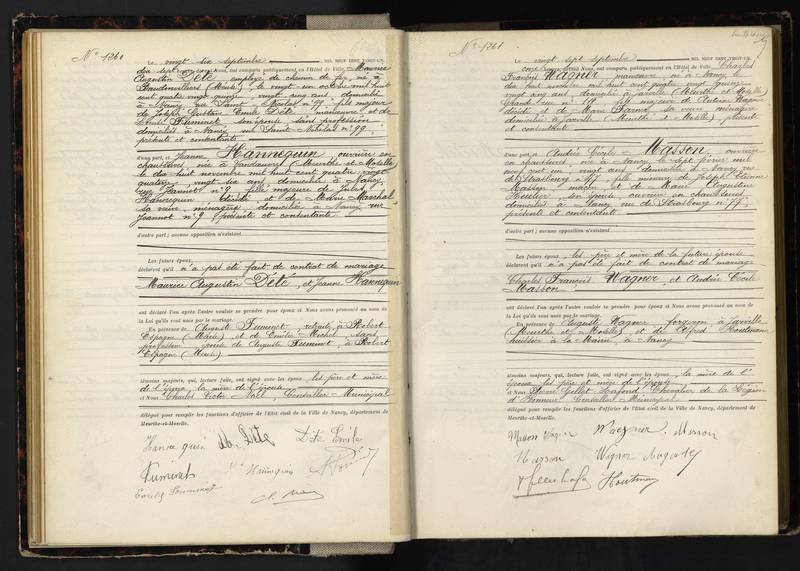 N° 1260
Le vingt sept septembre MIL NEUF CENT VINGT-UN,
dix sept heures, devant Nous, ont comparu publiquement en l'Hôtel de Ville, Maurice
Augustin DÉTÉ, employé de chemin de fer, né à
(Meuse), le vingt un octobre mil huit
cent quatre vingt quinze, vingt cinq ans, domicilié
à Nancy, rue Saint Nicolas n° 99, fils majeur
de Joseph Gustave Emile DÉTÉ, manœuvre, et de
son épouse, sans profession,
domiciliés à Nancy, rue Saint Nicolas n° 99,
présents et consentants
d'une part, et Jeanne HANNEQUIN, ouvrière en
chaussures, née à Vandœuvre (Meurthe et Moselle)
le dix huit novembre mil huit cent quatre vingt
quatorze, vingt six ans, domiciliée à Nancy,
rue Jeannot n° 9, fille majeure de Jules
Hannequin, décédé, et de Marie Marchal
sa veuve, ménagère, domiciliée à Nancy, rue
Jeannot n° 9, présente et consentante
d'autre part ; aucune opposition n'existant
Les futurs époux
déclarent qu'il n'a pas été fait de contrat de mariage
Maurice Augustin DÉTÉ, et Jeanne Hannequin
ont déclaré l'un après l'autre vouloir se prendre pour époux et Nous avons prononcé au nom de
la Loi qu'ils sont unis par le mariage.
En présence de Auguste Fuminet, retraité, à Robert
Espagne (Meuse) et de Emilie Michel, sans
profession, épouse de Auguste Fuminet, à Robert
Espagne (Meuse)
témoins majeurs, qui, lecture faite, ont signé avec les époux, les père et mère
de l'époux, la mère de l'épouse
et Nous Charles Victor Noël, Conseiller Municipal
délégué pour remplir les fonctions d'officier de l'Etat civil de la Ville de Nancy, département de
Meurthe-et-Moselle.
Hannequin Dété Dété Emile
Fuminet Hannequin
N° 1261
Le vingt sept septembre MIL NEUF CENT VINGT-UN,
heures, devant Nous, ont comparu publiquement en l'Hôtel de Ville, Charles
François WAGNER, manœuvre, né à Nancy le
dix huit octobre mil huit cent quatre vingt quinze
vingt cinq ans, domicilié à Jarville (Meurthe et Moselle)
Grande rue n° 19, fils majeur de Antoine Wagner
décédé et de Marie sa veuve, ménagère
domiciliée à Jarville (Meurthe et Moselle), présente
et consentante
d'une part, et Andrée Cécile MASSON, ouvrière
en chaussures, née à Nancy, le sept février mil
neuf cent un, vingt ans, domiciliée à Nancy, rue
de Strasbourg n° 77, fille mineure de Joseph
Masson, maçon, et de Marie Augustine
son épouse, ouvrière en chaussures,
domiciliés à Nancy, rue de Strasbourg n° 77,
présents et consentants
d'autre part ; aucune opposition n'existant
Les futurs époux, les père et mère de la future épouse
déclarent qu'il n'a pas été fait de contrat de mariage
Charles François WAGNER, et Andrée Cécile
MASSON
ont déclaré l'un après l'autre vouloir se prendre pour époux et Nous avons prononcé au nom de
la Loi qu'ils sont unis par le mariage.
En présence de Auguste Wagner, forgeron, à Jarville
(Meurthe et Moselle), et de Alfred Houtmann
huissier à la Mairie, à Nancy
témoins majeurs, qui, lecture faite, ont signé avec les époux, la mère de l'
époux, les père et mère de l'épouse
et Nous Chevalier de la Légion
d'Honneur, Conseiller Municipal
délégué pour remplir les fonctions d'officier de l'Etat civil de la Ville de Nancy, département de
Meurthe-et-Moselle.
Masson Wagner Masson
Masson Wagner Auguste
Houtmann